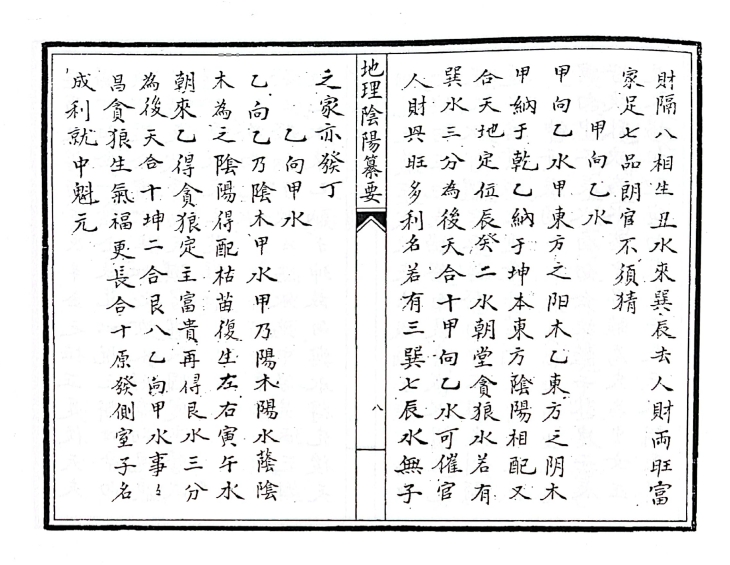 財隔八相生丑水來巽辰去人財両旺富
家足七品朗官不須猜
甲向乙水
甲向乙水甲東方之阳木乙東方之阴木
甲納于乾乙納于坤本東方陰陽相配又
合天地定位辰癸二水朝堂貪狼水若有
巽水三分為後天合十甲向乙水可催官
人財興旺多利名若有三巽七辰水無子
地理陰陽纂要
八
之家亦發丁
乙向甲水
乙向乙乃陰木甲水甲乃陽木陽水蔭陰
木為之陰陽得配枯苗復生左右寅午水
朝來乙得貪狼定主富貴再得艮水三分
為後天合十坤二合艮八乙向甲水事〻
昌貪狼生氣福更長合十原發側室子名
成利就中魁元